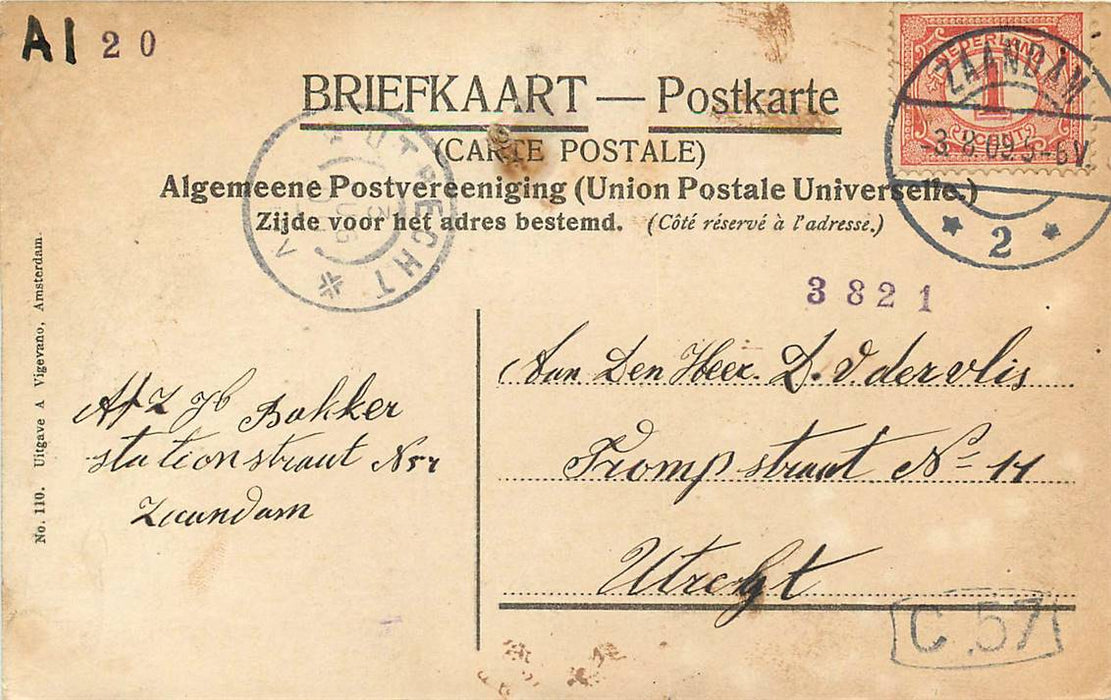 AI 20
BRIEFKAART — Postkarte
(CARTE POSTALE)
Algemeene Postvereeniging (Union Postale Universelle.)
Zijde voor het adres bestemd. (Côté réservé à l'adresse.)
NEDERLAND
1
CENT
ZAANDAM
-3.8.09.5-6V.
2
UTRECHT
3821
Aan Den Heer. D. v der vlis
Tromp straat No 11
Utregt
Af Z Jb Bakker
stationstraat
Zaandam
No. 110. Uitgave A Vigevano, Amsterdam.
C 57